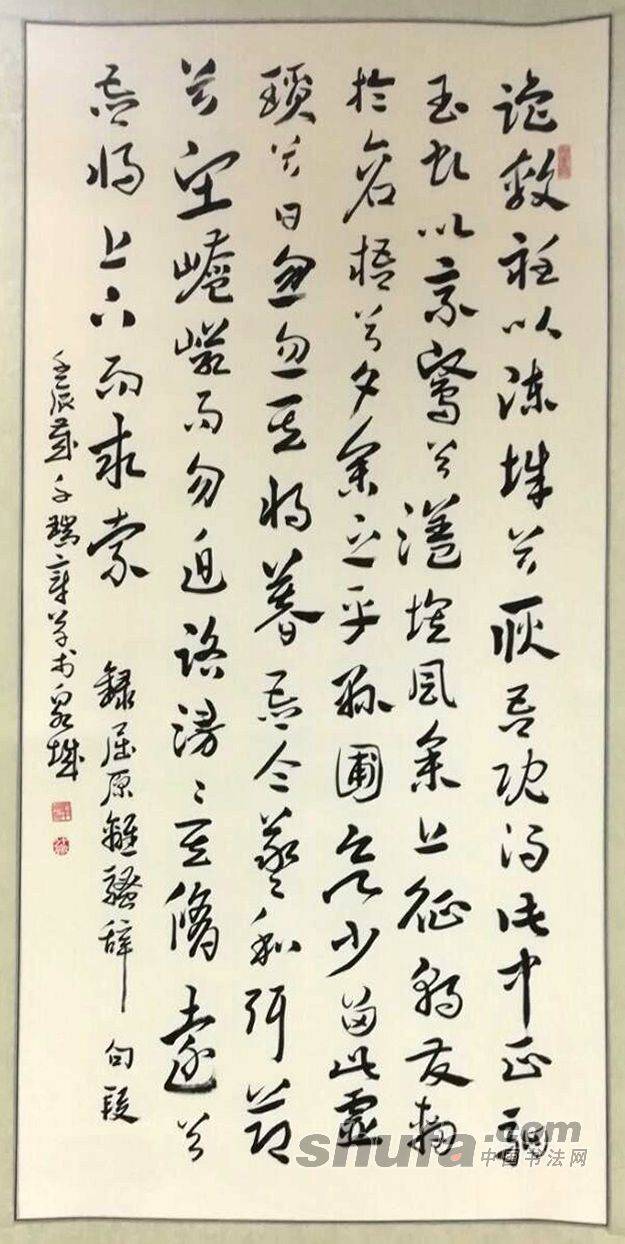 跪敷衽以陳辭兮耿吾既得此中正駟
玉虬以乘鷖兮溘埃風余上征朝發軔
於蒼梧兮夕余至乎縣圃欲少留此靈
瑣兮日忽忽其將暮吾令羲和弭節
兮望崦嵫而勿迫路漫〻其脩遠兮
吾將上下而求索 錄屈原離騷辭 句段
壬辰 瑞 泉城
shufa.com
中国书法网